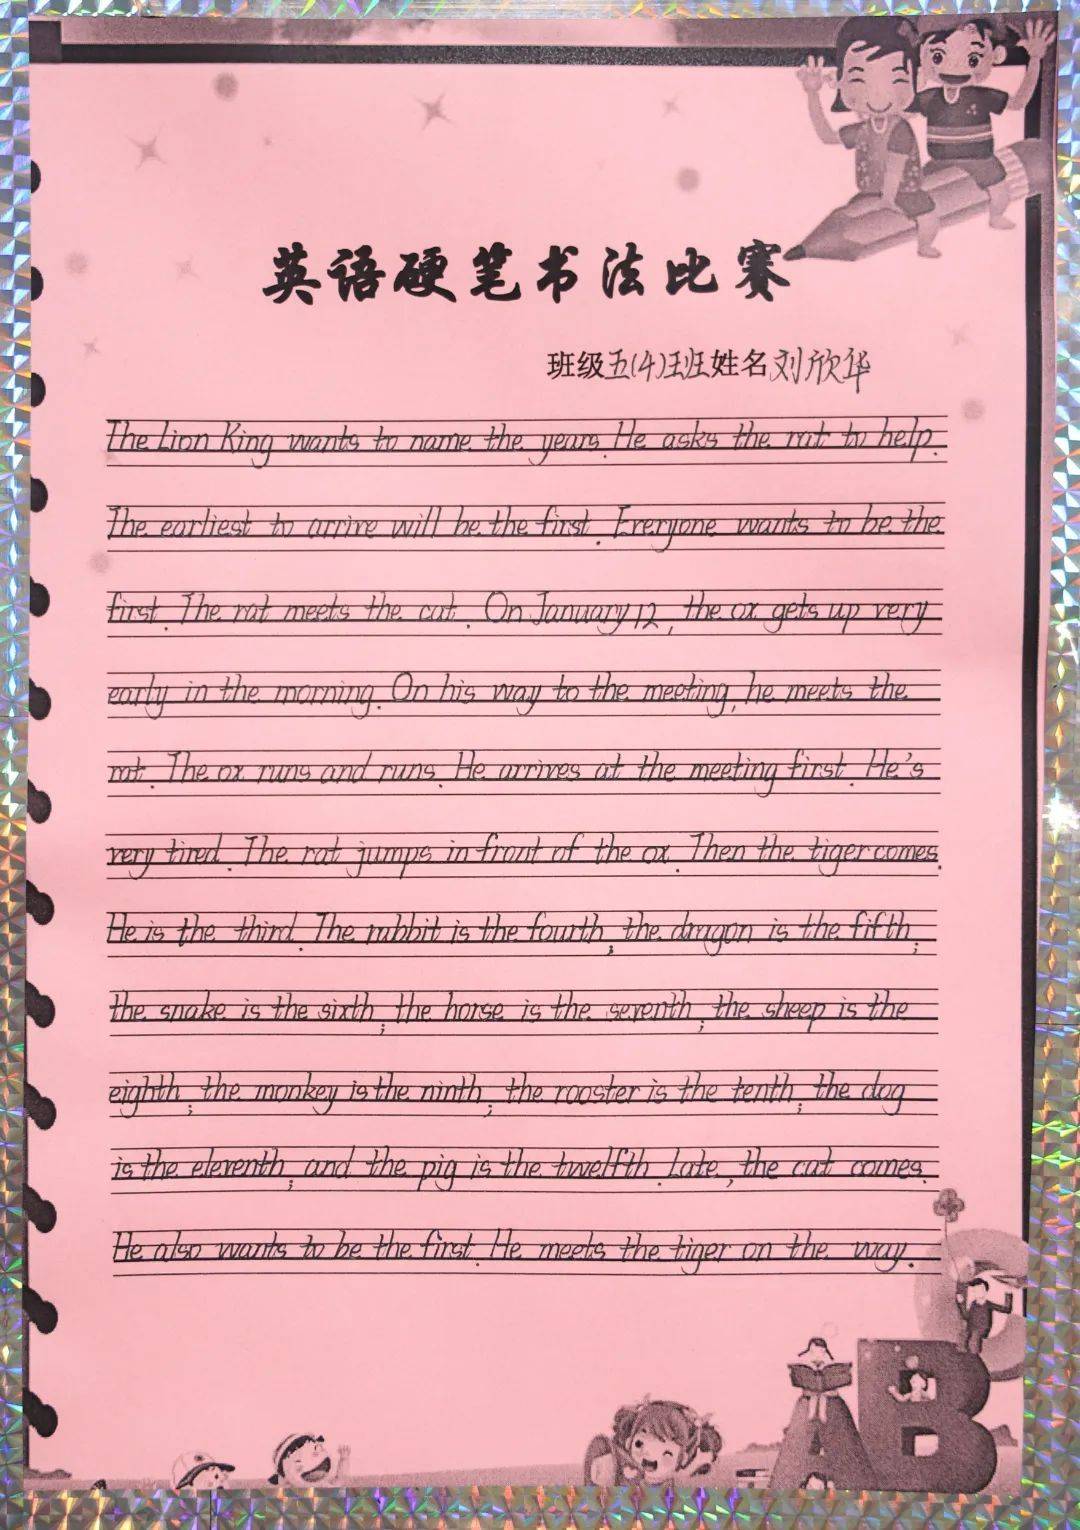 英语硬笔书法比赛
班级五(4)班姓名刘欣华
The Lion King wants to name the years. He asks the rat to help.
The earliest to arrive will be the first. Everyone wants to be the
first. The rat meets the cat. On January 12, the ox gets up very
early in the morning. On his way to the meeting, he meets the
rat. The ox runs and runs. He arrives at the meeting first. He's
very tired. The rat jumps in front of the ox. Then the tiger comes.
He is the third. The rabbit is the fourth; the dragon is the fifth;
the snake is the sixth; the horse is the seventh; the sheep is the
eighth; the monkey is the ninth; the rooster is the tenth; the dog
is the eleventh; and the pig is the twelfth. Late, the cat comes.
He also wants to be the first. He meets the tiger on the way.
AB